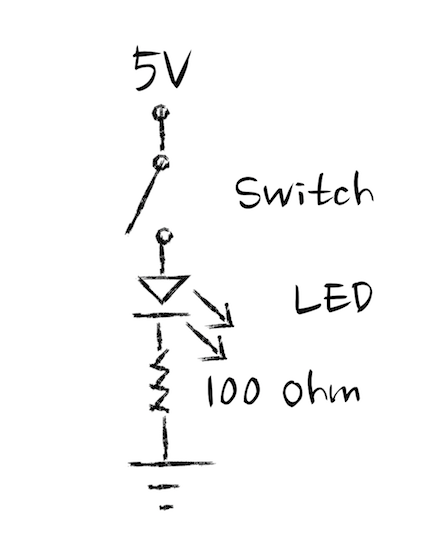 5V
Switch
LED
100 ohm